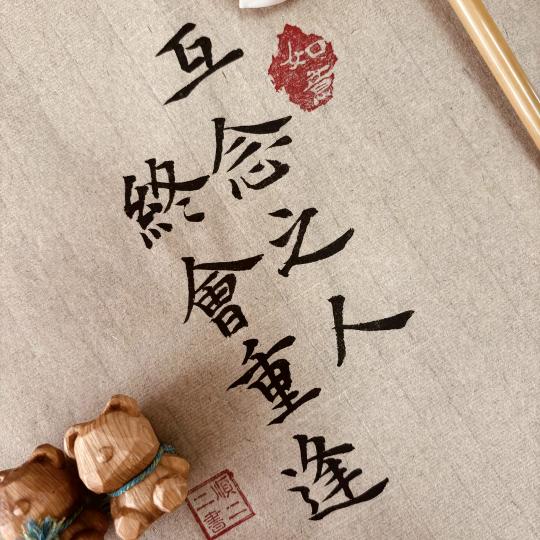 如意
互念之人
終會重逢
順二
二書